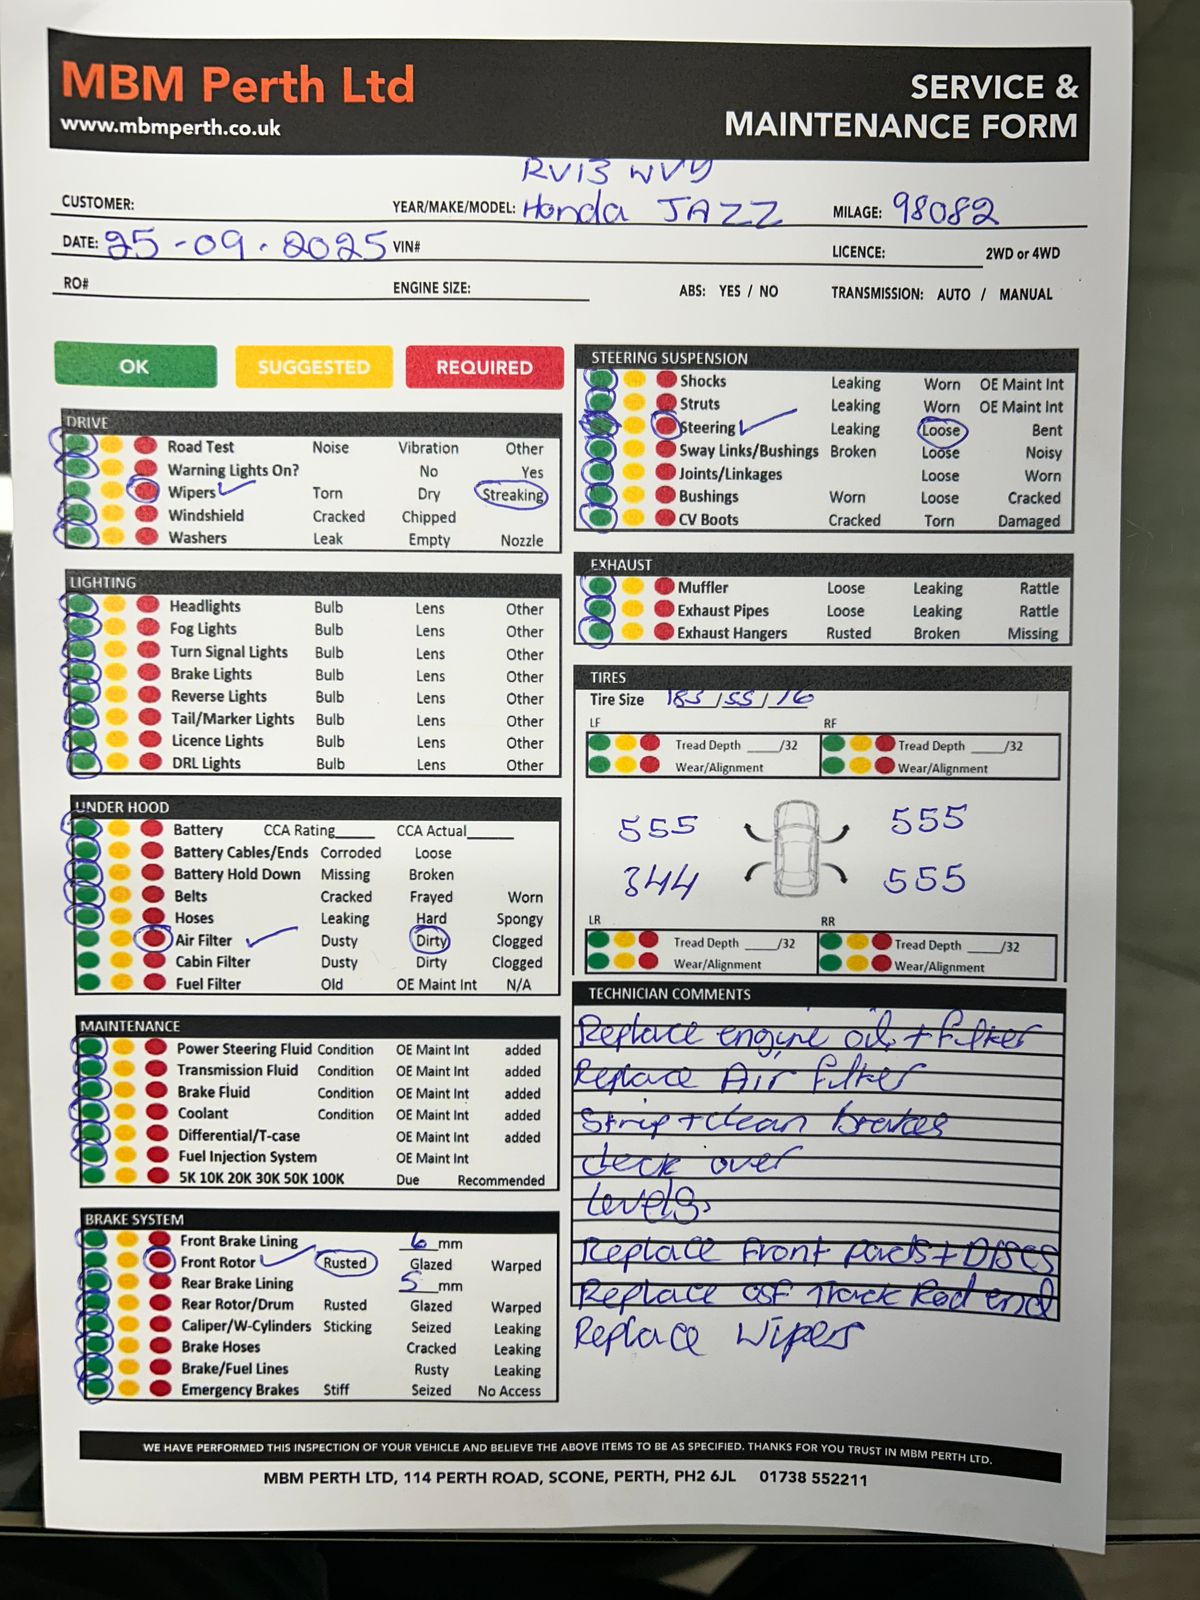 MBM Perth Ltd
www.mbmperth.co.uk
SERVICE &
MAINTENANCE FORM
RV13 WVY
CUSTOMER: YEAR/MAKE/MODEL: Honda JAZZ MILAGE: 98082
DATE: 25-09.2025 VIN# LICENCE: 2WD or 4WD
RO# ENGINE SIZE: ABS: YES / NO TRANSMISSION: AUTO / MANUAL
OK SUGGESTED REQUIRED
DRIVE
Road Test Noise Vibration Other
Warning Lights On? No Yes
Wipers Torn Dry Streaking
Windshield Cracked Chipped
Washers Leak Empty Nozzle
LIGHTING
Headlights Bulb Lens Other
Fog Lights Bulb Lens Other
Turn Signal Lights Bulb Lens Other
Brake Lights Bulb Lens Other
Reverse Lights Bulb Lens Other
Tail/Marker Lights Bulb Lens Other
Licence Lights Bulb Lens Other
DRL Lights Bulb Lens Other
UNDER HOOD
Battery CCA Rating_____ CCA Actual______
Battery Cables/Ends Corroded Loose
Battery Hold Down Missing Broken
Belts Cracked Frayed Worn
Hoses Leaking Hard Spongy
Air Filter Dusty Dirty Clogged
Cabin Filter Dusty Dirty Clogged
Fuel Filter Old OE Maint Int N/A
MAINTENANCE
Power Steering Fluid Condition OE Maint Int added
Transmission Fluid Condition OE Maint Int added
Brake Fluid Condition OE Maint Int added
Coolant Condition OE Maint Int added
Differential/T-case OE Maint Int added
Fuel Injection System OE Maint Int
5K 10K 20K 30K 50K 100K Due Recommended
BRAKE SYSTEM
Front Brake Lining 6 mm
Front Rotor Rusted Glazed Warped
Rear Brake Lining 5 mm
Rear Rotor/Drum Rusted Glazed Warped
Caliper/W-Cylinders Sticking Seized Leaking
Brake Hoses Cracked Leaking
Brake/Fuel Lines Rusty Leaking
Emergency Brakes Stiff Seized No Access
STEERING SUSPENSION
Shocks Leaking Worn OE Maint Int
Struts Leaking Worn OE Maint Int
Steering Leaking Loose Bent
Sway Links/Bushings Broken Loose Noisy
Joints/Linkages Loose Worn
Bushings Worn Loose Cracked
CV Boots Cracked Torn Damaged
EXHAUST
Muffler Loose Leaking Rattle
Exhaust Pipes Loose Leaking Rattle
Exhaust Hangers Rusted Broken Missing
TIRES
Tire Size 185/55/16
LF RF
Tread Depth ____/32 Tread Depth ____/32
Wear/Alignment Wear/Alignment
555 555
344 555
LR RR
Tread Depth ____/32 Tread Depth ____/32
Wear/Alignment Wear/Alignment
TECHNICIAN COMMENTS
Replace engine oil + filter
Replace Air filter
Strip + clean brakes
check over
levels.
Replace front pads + DISCS
Replace OSF Track Rod end
Replace Wipers
WE HAVE PERFORMED THIS INSPECTION OF YOUR VEHICLE AND BELIEVE THE ABOVE ITEMS TO BE AS SPECIFIED. THANKS FOR YOU TRUST IN MBM PERTH LTD.
MBM PERTH LTD, 114 PERTH ROAD, SCONE, PERTH, PH2 6JL 01738 552211